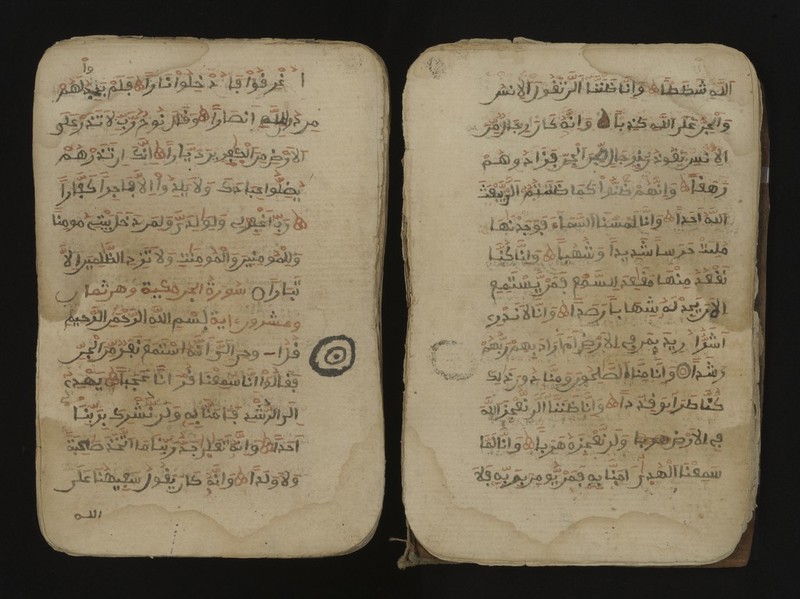 اغرقوا فادخلوا نارا فلم يجدوا لهم
من دون الله انصارا وقال نوح رب لا تذر على
الارض من الكفرين ديارا انك ان تذرهم
يضلوا عبادك ولا يلدوا الا فاجرا كفارا
رب اغفر لي ولولدي ولمن دخل بيتي مومنا
وللمومنين والمومنت ولا تزد الظلمين الا
تبارا سورة الجن مكية وهي ثمان
وعشرون ءاية بسم الله الرحمن الرحيم
قل اوحي الي انه استمع نفر من الجن
فقالوا انا سمعنا قرانا عجبا يهدي
الى الرشد فامنا به ولن نشرك بربنا
احدا وانه تعلى جد ربنا ما اتخذ صحبة
ولا ولدا وانه كان يقول سفيهنا على
الله
الله شططا وانا ظننا الن تقول الانس
والجن على الله كذبا وانه كان رجال من
الانس يعوذون برجال من الجن فزادوهم
رهقا وانهم ظنوا كما ظننتم الن يبعث
الله احدا وانا لمسنا السماء فوجدنها
ملئت حرسا شديدا وشهبا وانا كنا
نقعد منها مقعد للسمع فمن يستمع
الان يجد له شهابا رصدا وانا لا ندري
اشر اريد بمن في الارض ام اراد بهم ربهم
رشدا وانا منا الصلحون ومنا دون ذلك
كنا طرايق قددا وانا ظننا الن نعجز الله
في الارض هربا ولن نعجزه هربا وانا لما
سمعنا الهدى امنا به فمن يومن بربه فلا